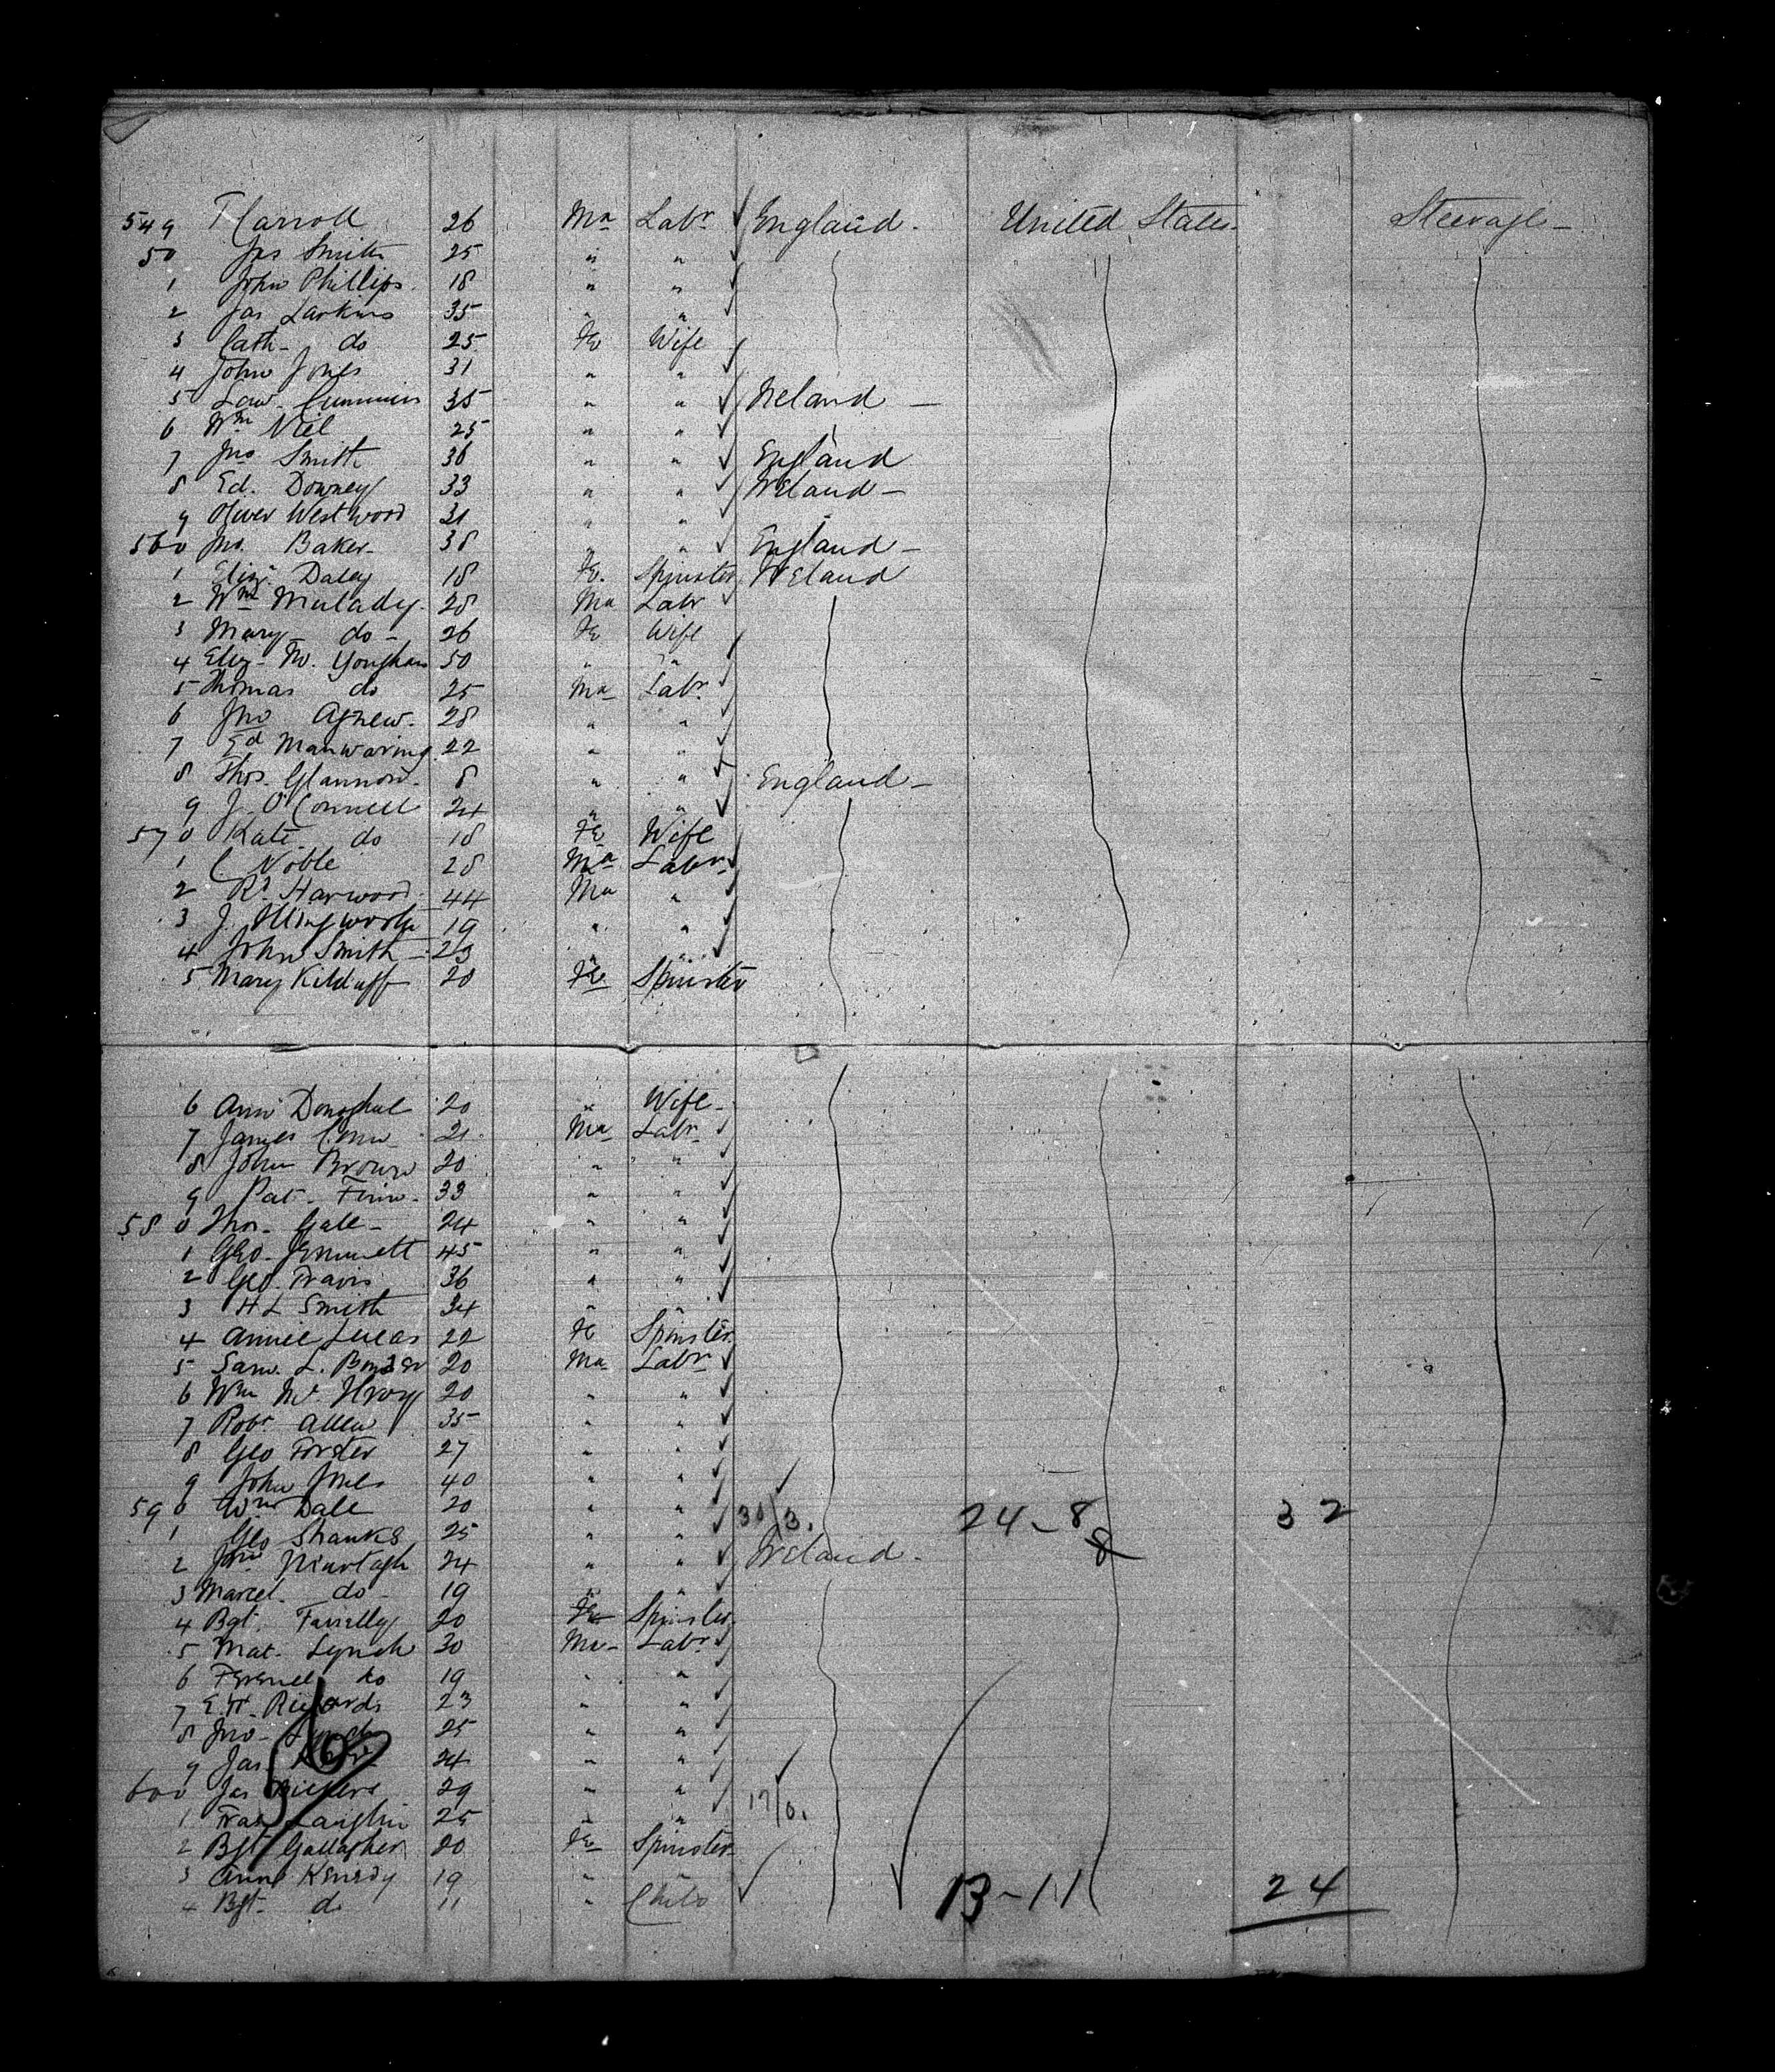 549 T Carroll 26 Ma Labr England - United States - Steerage -
50 Jas Smith 25 " "
1 John Phillips 18 " "
2 Jas Larkins 35 " "
3 Cath- do 25 Fe Wife
4 John Jones 31 " "
5 Law. Cummins 35 " " Ireland -
6 Wm Niel 25 " "
7 Jno Smith 36 " " England
8 Ed. Downey 33 " " Ireland -
9 Oliver Westwood 31 " "
560 Jno. Baker- 38 " " England -
1 Eliz. Daley 18 Fe. Spinster Ireland
2 Wm Malady. 28 Ma Labr
3 Mary- do- 26 Fe Wife
4 Eliz- 50 " "
5 Thomas do 25 Ma Labr
6 Jno Agnew. 28 " "
7 Ed Manwaring 22 " "
8 Thos. 8 " " England -
9 J. O'Connell 24 " "
570 Kate do 18 Fe Wife
1 C Noble 28 Ma Labr
2 Rd Harwood 44 Ma "
3 J. Illingworth 19 " "
4 John Smith - 23 " "
5 Mary Kilduff 20 Fe. Spinster
6 Ann Donoghue 20 " Wife-
7 James 21 Ma Labr
8 John Brown 20 " "
9 Pat- Finn- 33 " "
580 Thos- Gale- 24 " "
1 Geo- Jemmett 45 " "
2 Geo. Travis 36 " "
3 H L Smith 34 " "
4 Annie Lucas 22 Fe Spinster
5 Sam. L. 20 Ma Labr
6 Wm 20 " "
7 Robt Allen 35 " "
8 Geo Forster 27 " "
9 John Jones 40 " "
590 Wm Dale 20 " " 30/3. 24-8 32
1 Geo Shanks 25 " " 8
2 Jno Murtagh 24 " " Ireland -
3 Marcel- do- 19 " "
4 Bgt. Farrelly 20 Fe Spinster
5 Mat- Lynch 30 Ma- Labr
6 do 19 " "
7 Richards 23 " "
8 Jno- Lynch 25 " "
9 Jas. 24 " "
600 Jas 29 " " 17/0.
1 Fras Laughlin 25 " "
2 Bgt Gallagher 20 Fe Spinster
3 Ann Kenedy 19 "
4 Bgt- do 11 " Child 13-11 24